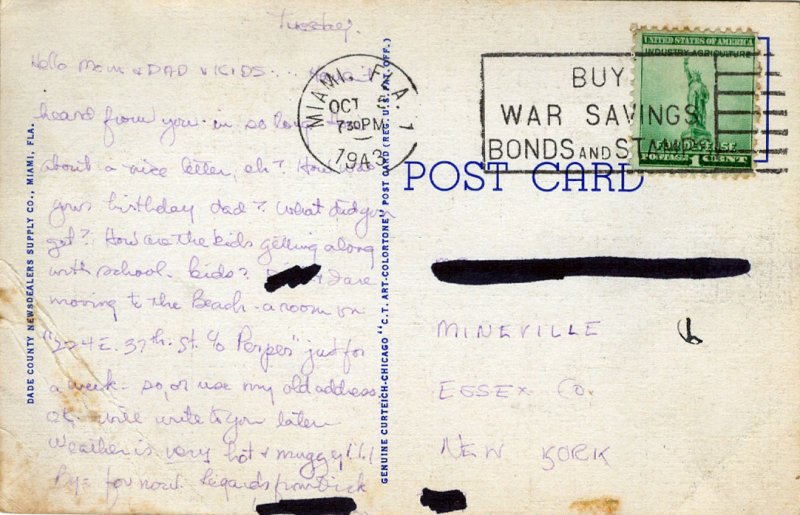 Tuesday.
Hello Mom & DAD & KIDS...
heard from you in so long
about a nice letter, eh? How was
your birthday dad? What did you
get? How are the kids getting along
with school- kids? & I are
moving to the Beach- a room on
"224 E. 37th. St. c/o Perpes" just for
a week- so, or use my old address
ok- will write to you later
Weather is very hot & muggy!!!
Bye for now. Regards from Dick
DADE COUNTY NEWSDEALERS SUPPLY CO., MIAMI, FLA.
GENUINE CURTEICH-CHICAGO "C.T. ART-COLORTONE" POST CARD (REG. U.S. PAT. OFF.)
MIAMI, FLA. 1
OCT
730 PM
1943
BUY
WAR SAVINGS
BONDS AND STAMPS
UNITED STATES OF AMERICA
INDUSTRY AGRICULTURE
FOR DEFENSE
POSTAGE 1 CENT
POST CARD
MINEVILLE
ESSEX CO.
NEW YORK